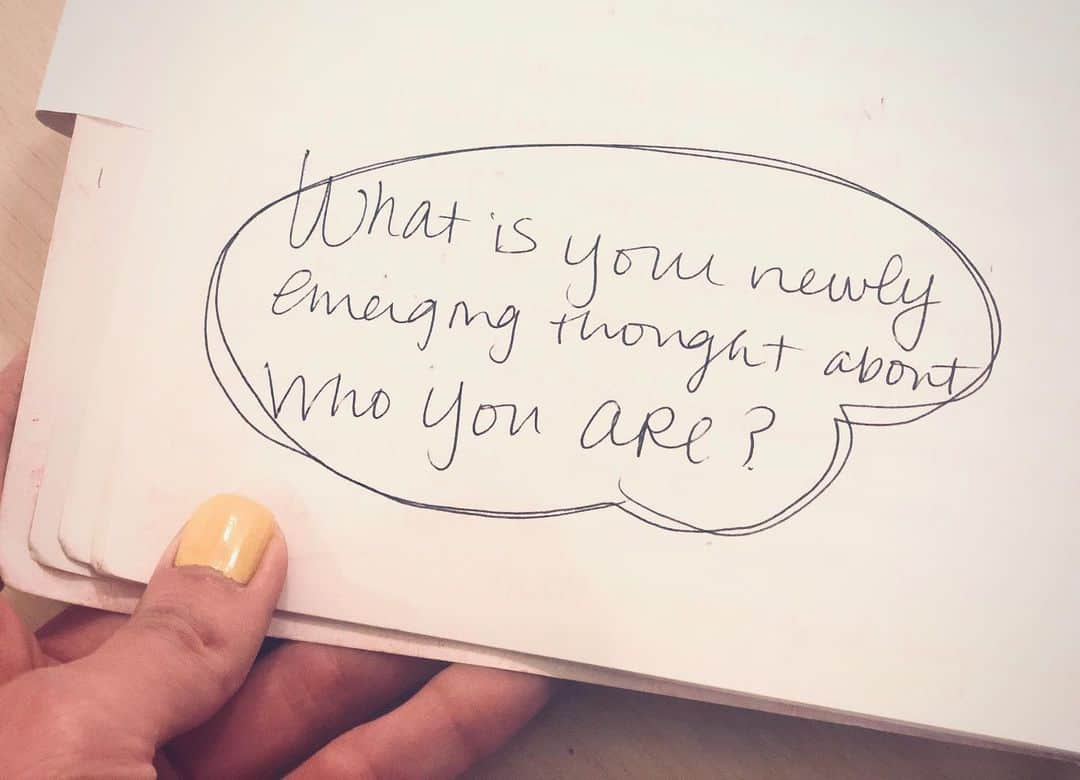 What is your newly
emerging thought about
Who you are?